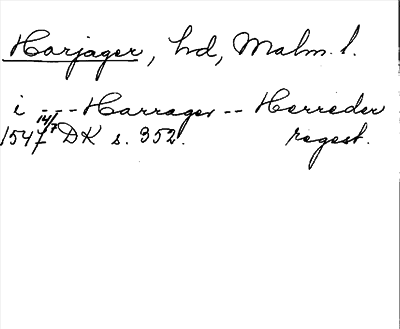 Harjager, hd, Malm. l.
i --- Harrager -- Herreder
1547 14/7 DK s. 352. regest.